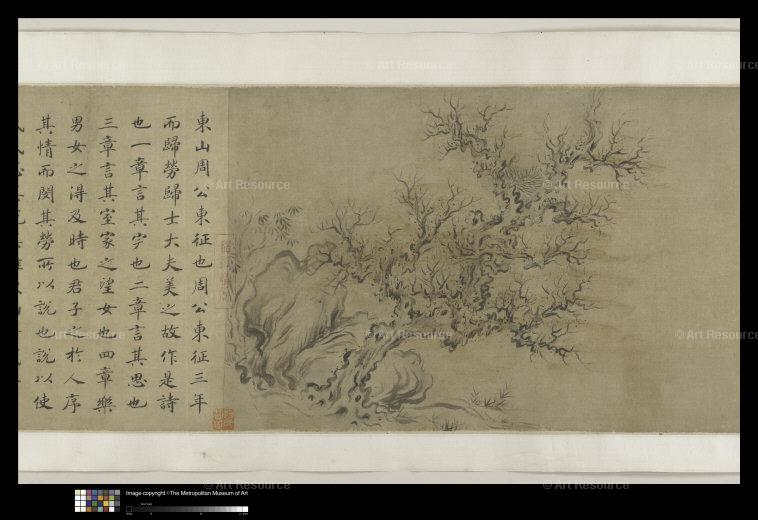 東山周公東征也周公東征三年
而歸勞歸士大夫美之故作是詩
也一章言其完也二章言其思也
三章言其室家之望女也四章樂
男女之得及時也君子之於人序
其情而閔其勞所以說也說以使
© Art Resource
© Art Resource
© Art Resource
© Art Resource
© Art Resource
© Art Resource
© Art Resource
© Art Resource
© Art Resource
Image copyright © The Metropolitan Museum of Art